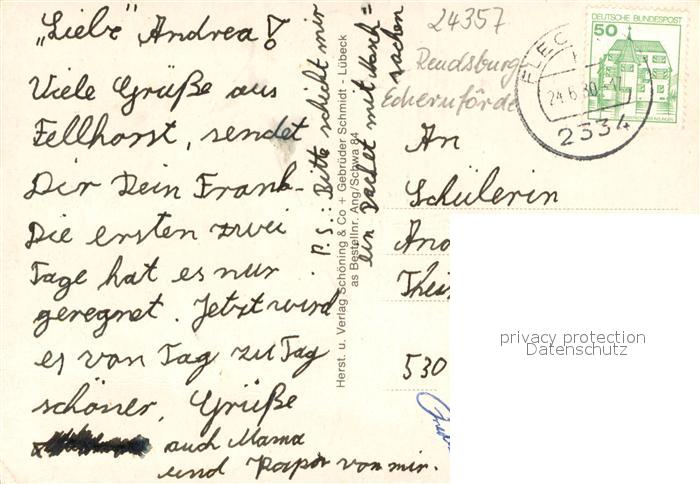 „Liebe" Andrea!
Viele Grüße aus
Fellhorst, sendet
Dir Dein Frank.
Die ersten zwei
Tage hat es nur
geregnet. Jetzt wird
es von Tag zu Tag
schöner. Grüße
auch Mama
und Papa von mir.
P.S.: Bitte schickt mir
ein Packet mit Nasch=
sachen
Herst. u. Verlag Schöning & Co + Gebrüder Schmidt - Lübeck
as Bestellnr. Ang/Schwa 84
24357
Rendsburg-
Eckernförde
DEUTSCHE BUNDESPOST
50
FLEC
24.6.80
2334
An
Schülerin
530
privacy protection
Datenschutz